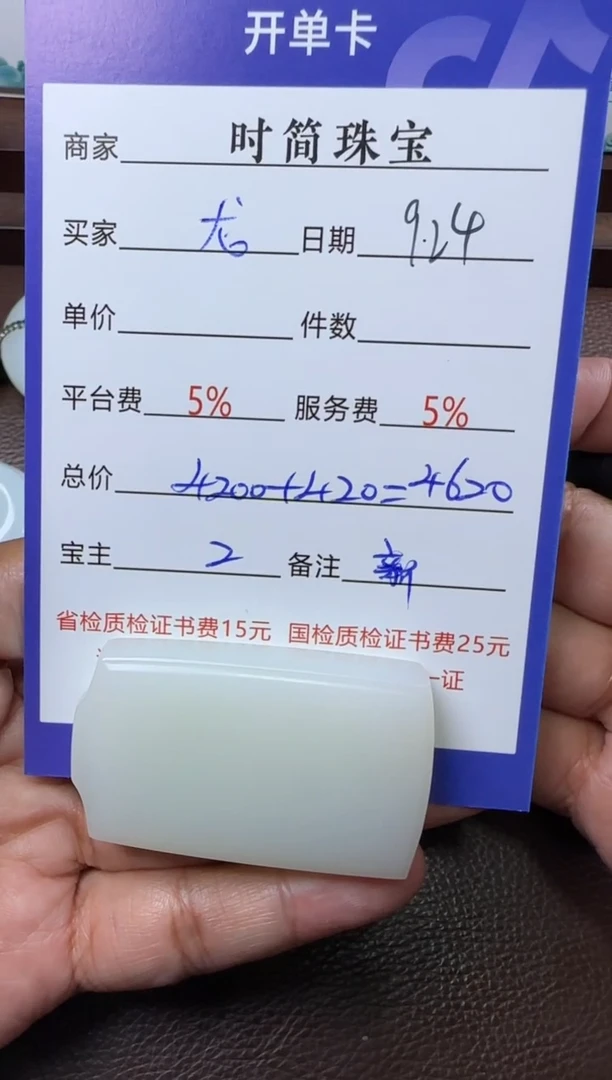 开单卡
商家 时简珠宝
买家 龙 日期 9.24
单价 件数
平台费 5% 服务费 5%
总价 4200+420=4620
宝主 2 备注 新
省检质检证书费15元 国检质检证书费25元
一证